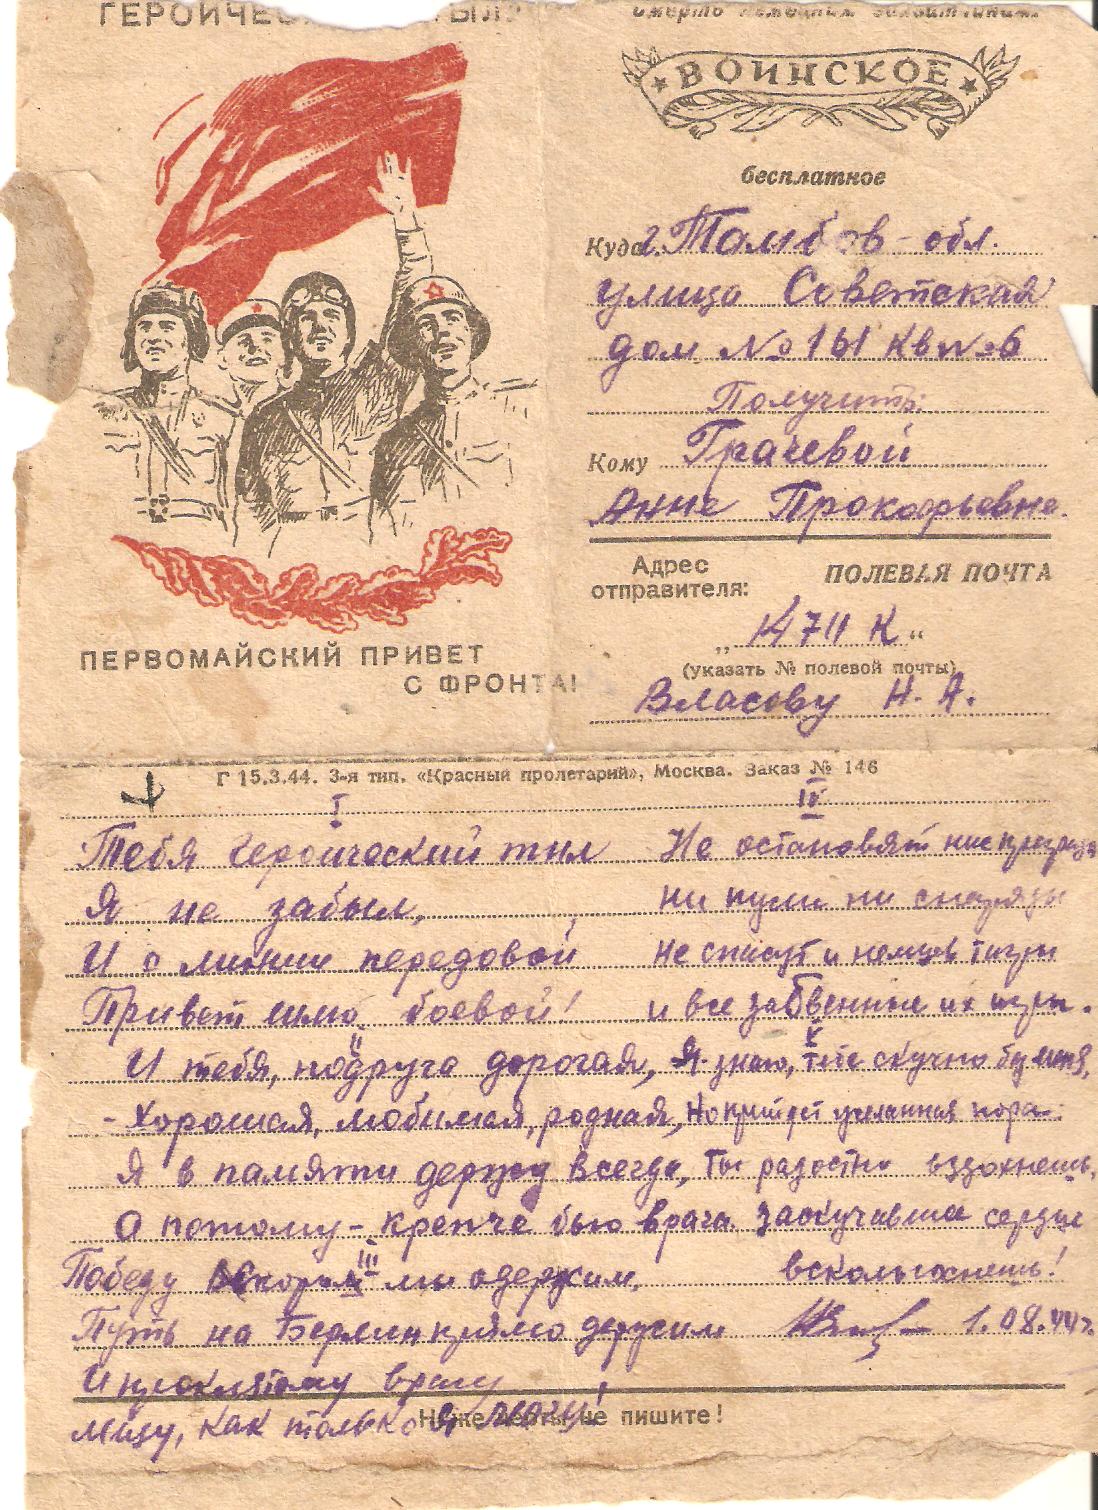 ГЕРОИЧЕС
Смерть немецким захватчикам
ВОИНСКОЕ
бесплатное
Куда г. Тамбов - обл.
улица Советская
дом № 161 кв № 6
Получить:
Кому Грачевой
Анне Прокофьевне.
Адрес отправителя:
ПОЛЕВАЯ ПОЧТА
„ 14711 К “
(указать № полевой почты)
Власову Н. А.
ПЕРВОМАЙСКИЙ ПРИВЕТ
С ФРОНТА!
Г 15.3.44. 3-я тип. «Красный пролетарий», Москва. Заказ № 146
I
Тебя героический тыл
Я не забыл,
И с линии передовой
Привет шлю боевой!
II
И тебя, подруга дорогая,
- Хорошая, любимая, родная,
Я в памяти держу всегда,
А потому - крепче бью врага.
III
Победу вскоре мы одержим,
Путь на Берлин прямо держим
И проклятому врагу
Мщу, как только я могу!
IV
Не остановят нас преграды
ни пули ни снаряды
Не спасут и немцев тигры
и все их игры.
V
Я знаю, тебе скучно без меня,
Но придет желанная пора:
Ты радостно вздохнешь,
Заскучавшее сердце
всколыхнешь!
1.08.44 г.
Ниже черты не пишите!